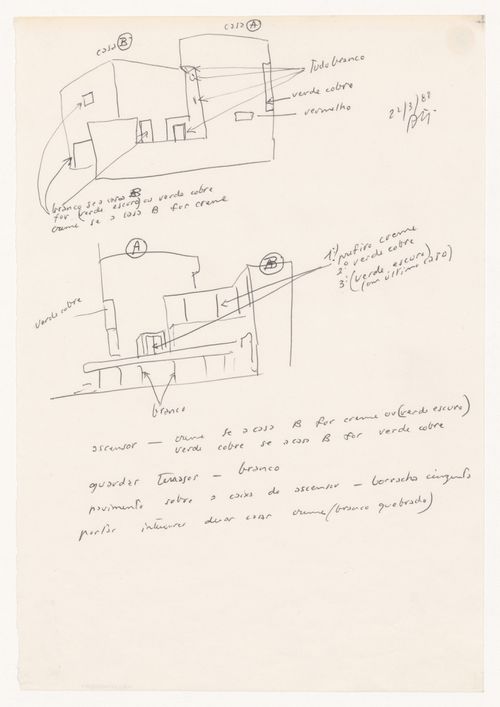 casa A
casa B
Tudo branco
verde cobre
vermelho
22/3/82
branco se a casa B
for (verde escuro) ou verde cobre
creme se a casa B for creme
A
B
1º) prefiro creme
2º verde cobre
3º (verde escuro)
(em último caso)
verde cobre
branco
ascensor — creme se a casa B for creme ou (verde escuro)
verde cobre se a casa B for verde cobre
guardas terraços — branco
pavimento sobre a caixa do ascensor — borracha cinzenta
portas interiores das casas creme (branco quebrado)